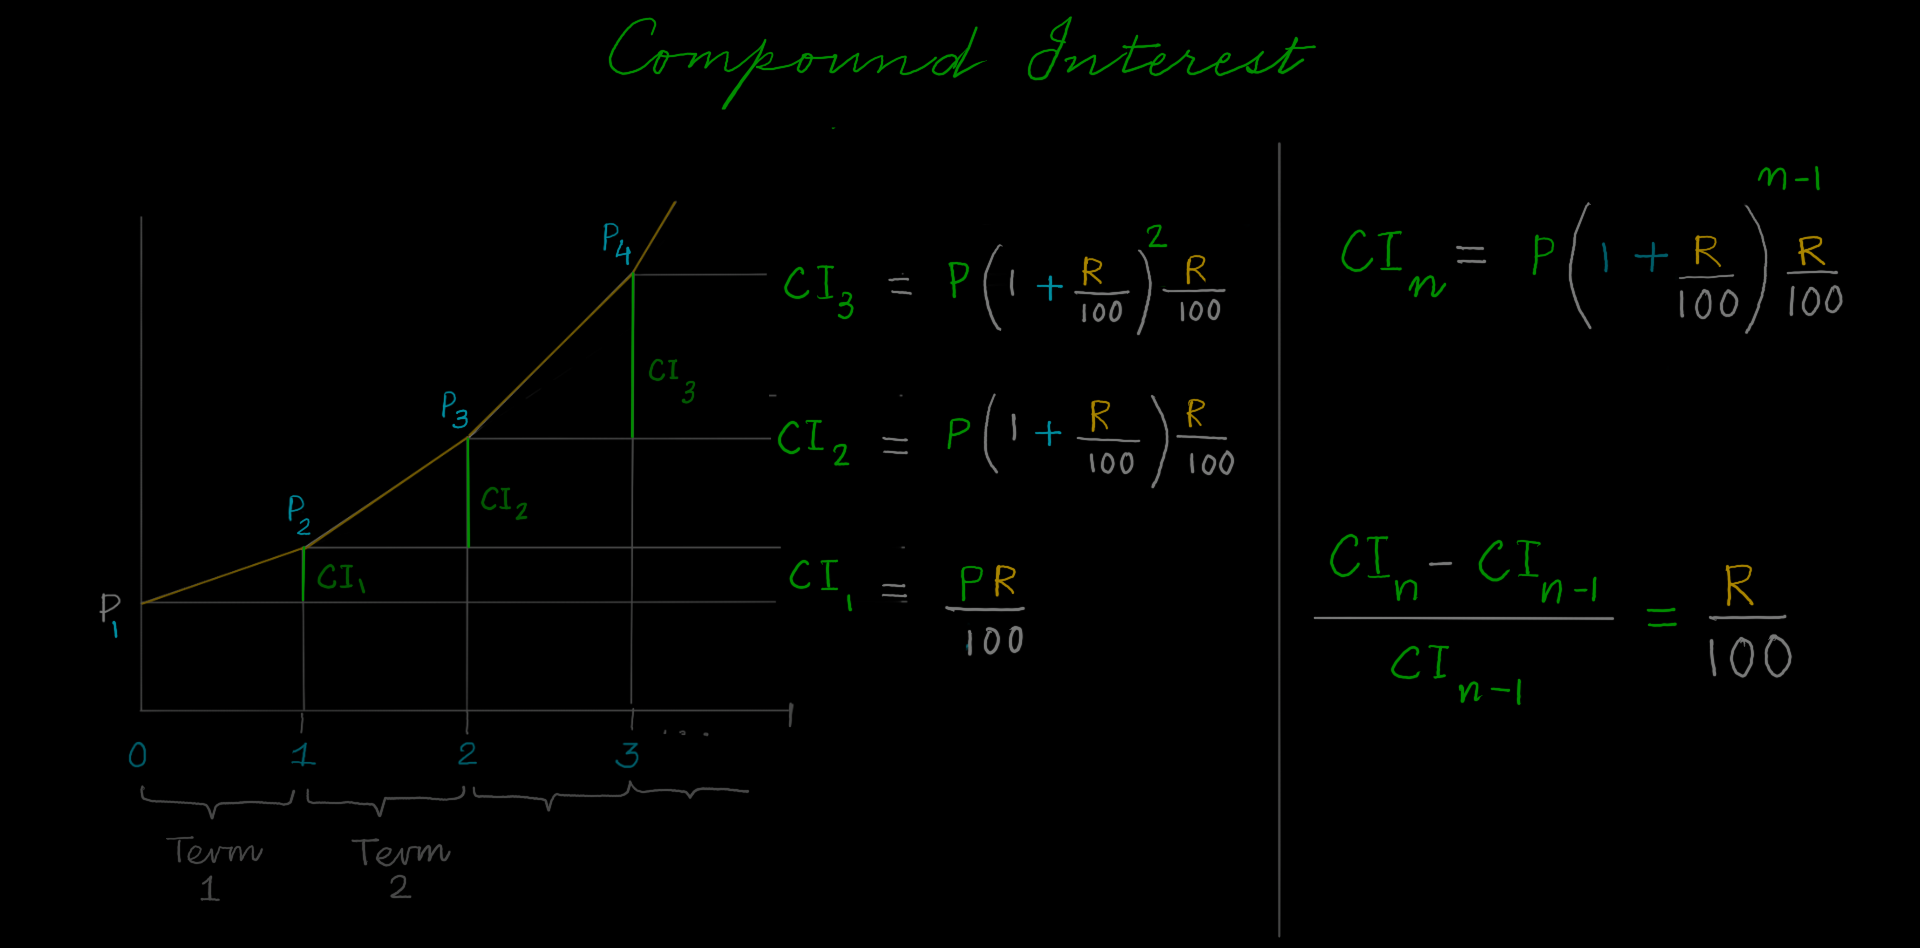 Compound Interest
P₄
CI₃
P₃
CI₂
P₂
CI₁
P₁
0 1 2 3 ....
Term 1
Term 2
CI₃ = P(1 + R/100)² R/100
CI₂ = P(1 + R/100) R/100
CI₁ = PR/100
CIₙ = P(1 + R/100)ⁿ⁻¹ R/100
(CIₙ - CIₙ₋₁)/CIₙ₋₁ = R/100